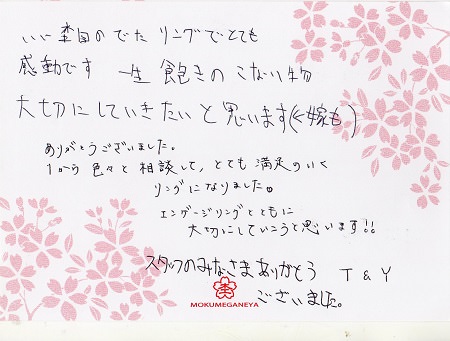 いい杢目のでた リングでとても
感動です 一生 飽きのこない物
大切にしていきたいと思います(<嫁も)
ありがとうございました。
1から 色々と 相談して、とても 満足のいく
リングになりました。
エンゲージリングとともに
大切にしていこうと思います!!
スタッフのみなさまありがとう T & Y
ございました。
MOKUMEGANEYA